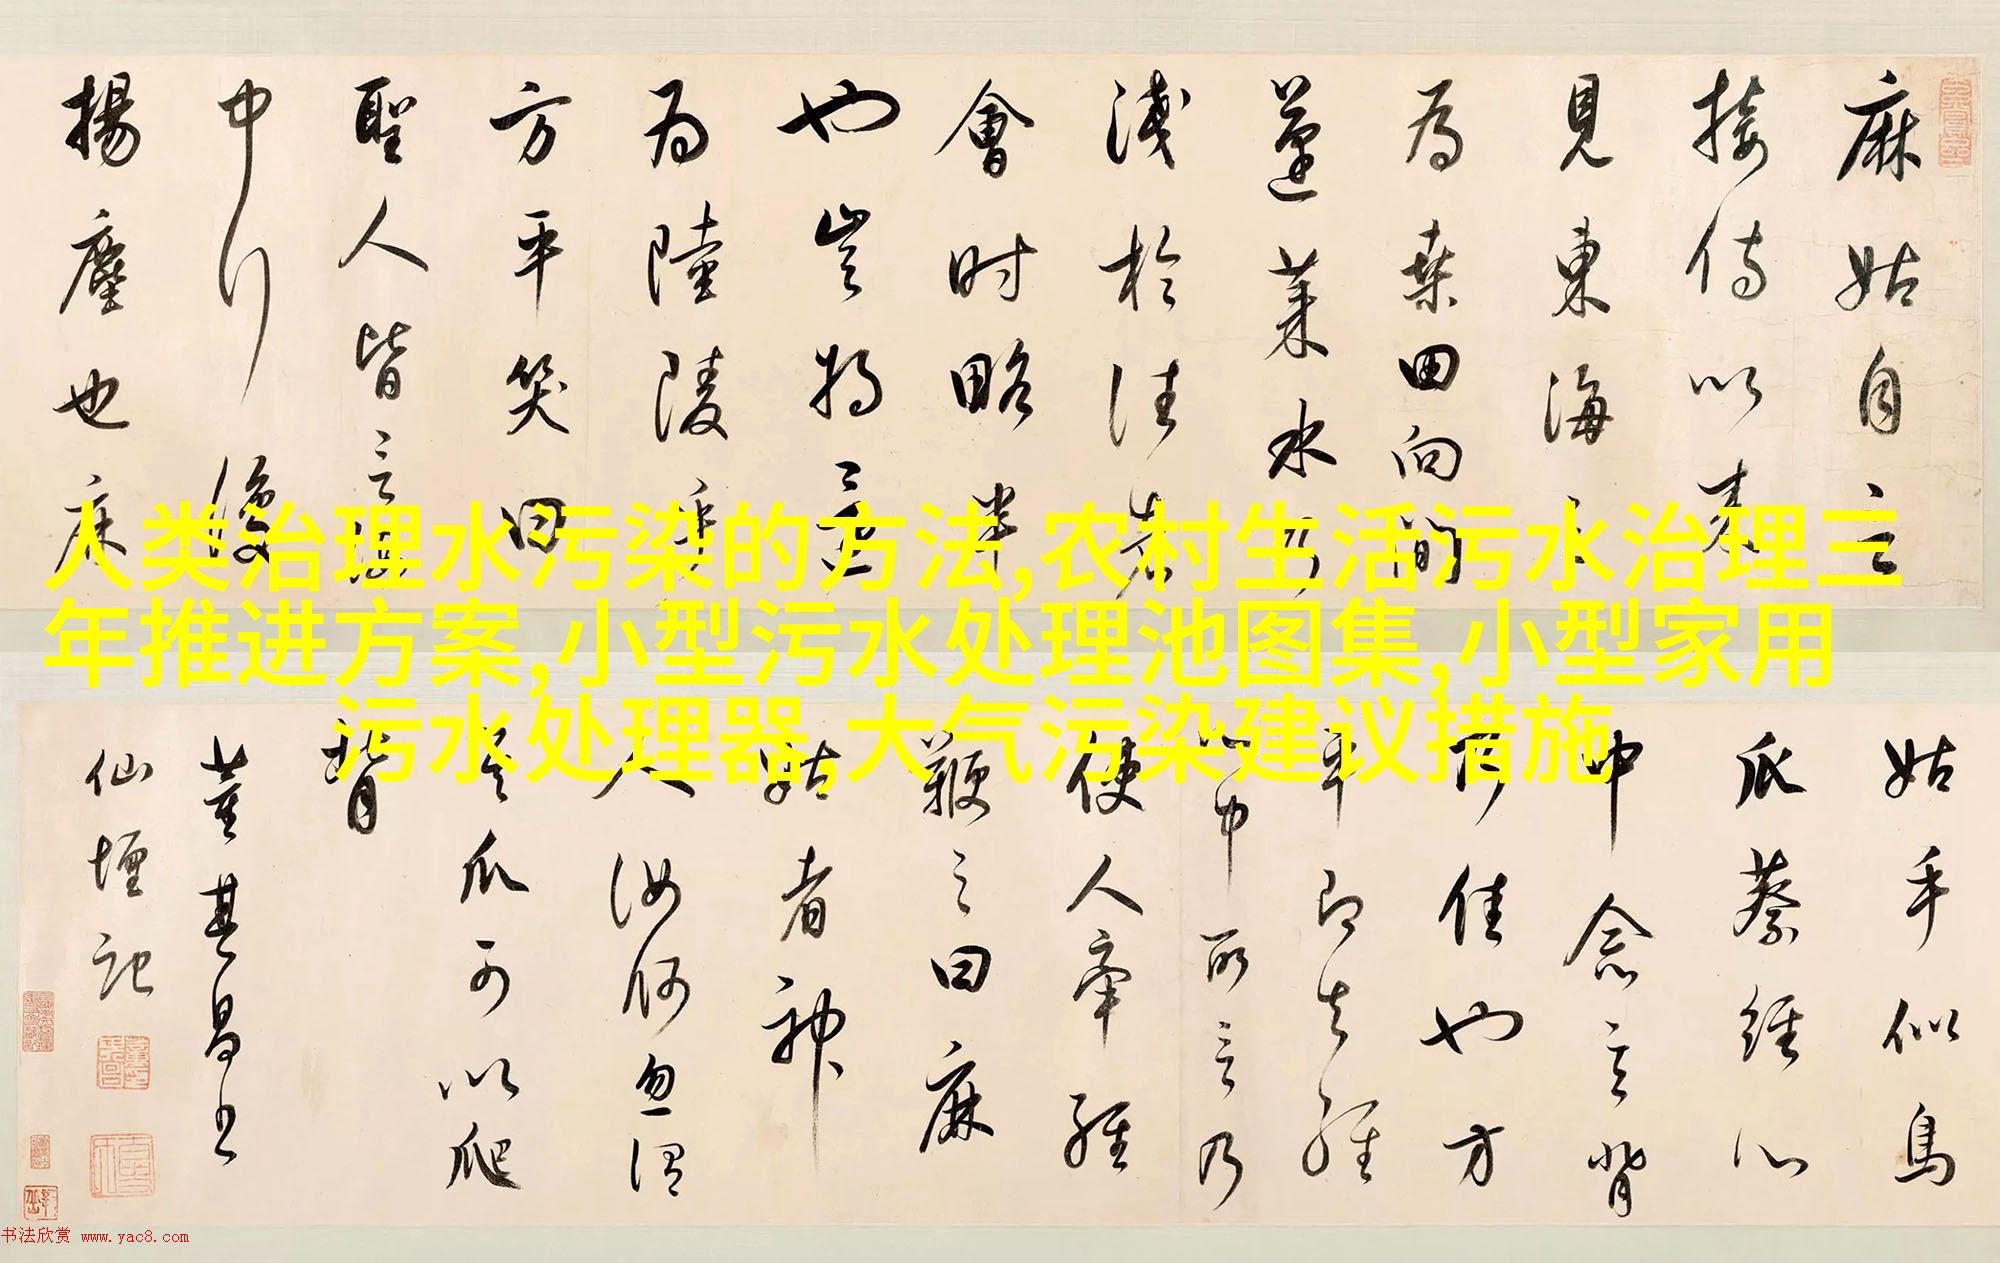 麻姑自言
接侍以來
見東海三
為桑田向間
蓬萊水乃
淺於往者
會時略半
也豈將
為陸陵乎
方平笑曰
聖人皆言海
中行復
揚塵也麻
人类治理水污染的方法,农村生活污水治理三
年推进方案,小型污水处理池图集,小型家用
污水处理器,大气污染建议措施
姑手似鳥
爪蔡經心
中念言背
可佳也方
平即知經
心中所言乃
使人牽經
鞭之曰麻
姑者神
人汝何忽謂
其爪可以爬
背
董其昌書
仙壇記
书法欣赏 www.yac8.com